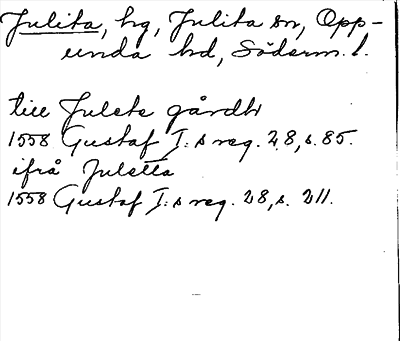 Julita, hg, Julita sn, Opp-
unda hd, Söderm. l.
till Julete gårdh
1558 Gustaf I:s reg. 28, s. 85.
ifrå Juletta
1558 Gustaf I:s reg. 28, s. 211.